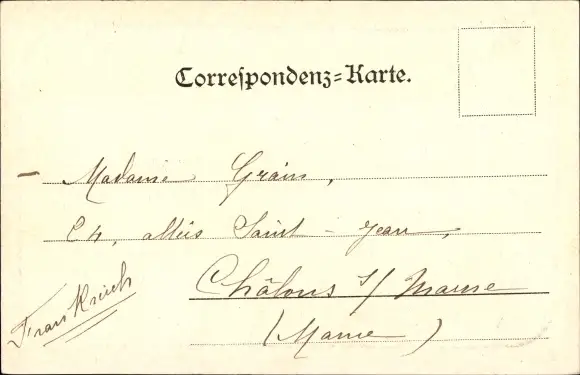 Correspondenz-Karte.
Madame Grain,
24, allées Saint-Jean,
Châlons s/ Marne
(Marne)
Frankreich